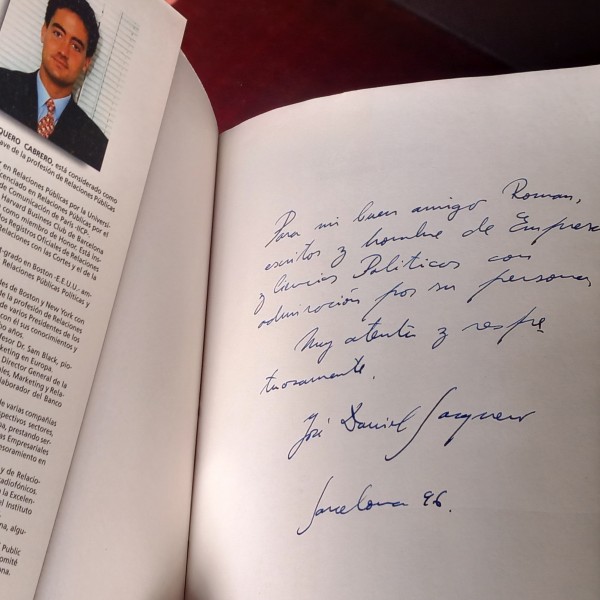 QUERO CABRERO, está considerado como
ave de la profesión de Relaciones Públicas
en Relaciones Públicas por la Universi-
cenciado en Relaciones Públicas por el
de Comunicación de París -IICA-.
Harvard Business Club de Barcelona
como miembro de Honor. Está ins-
os Registros Oficiales de Relaciones
Relaciones con las Cortes y el de la
t-grado en Boston -E.E.U.U.- am-
Relaciones Públicas Políticas y
des de Boston y New York con
de la profesión de Relaciones
de varios Presidentes de los
con él sus conocimientos y
bo años.
fesor Dr. Sam Black, pio-
keting en Europa.
Director General de la
les, Marketing y Rela-
olaborador del Banco
de varias compañías
spectivos sectores.
pa, prestando ser-
as Empresariales
sesoramiento en
y de Relacio-
adiofónicos.
la Excelen-
el Instituto
na, algu-
Public
omité
ona.
Para mi buen amigo Roman,
escritor y hombre de Empresa
y Ciencias Politicas con
admiración por su persona
Muy atenta y respe
tuosamente.
José Daniel Barquero
Barcelona 96.